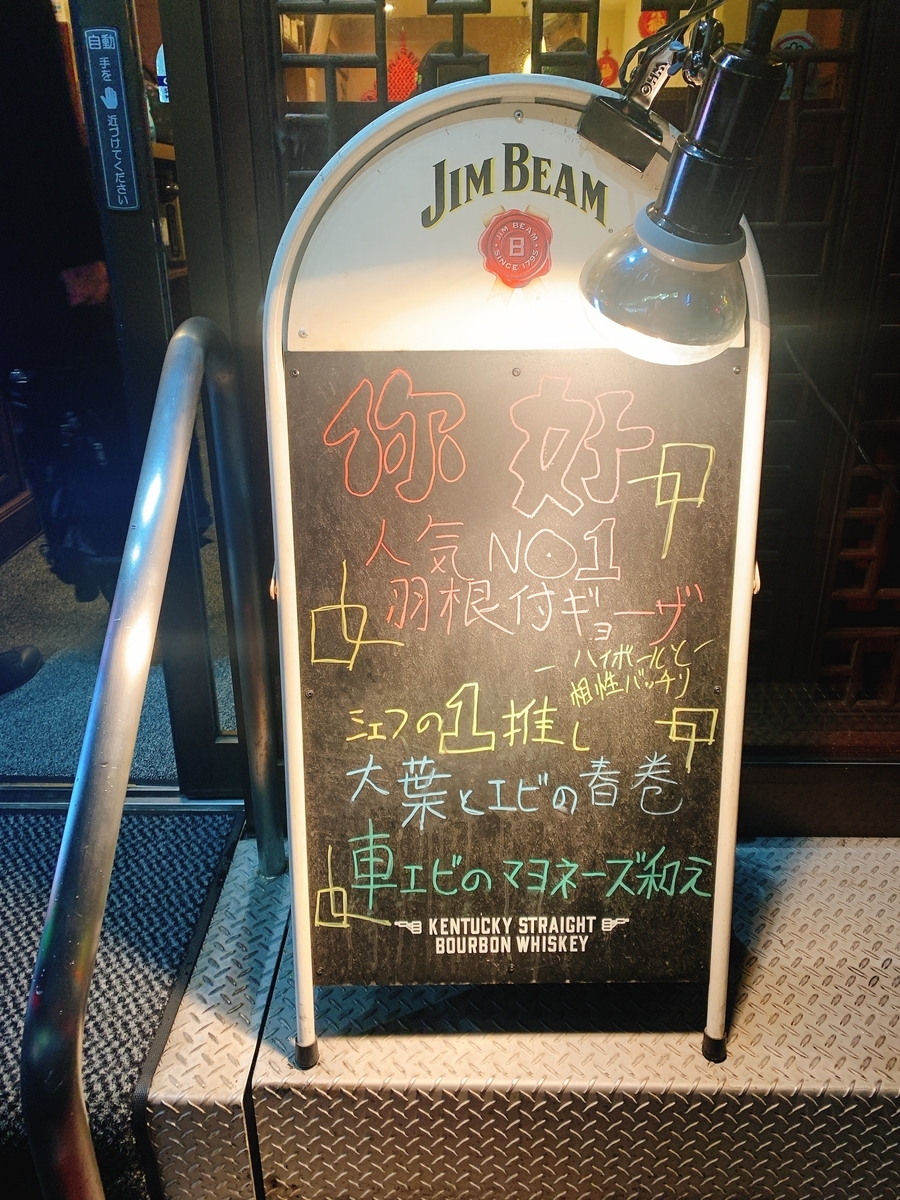 自動
手を
近づけてください
JIM BEAM
JIM BEAM
B
SINCE 1795
你好
人気NO1
羽根付ギョーザ
ハイボールと
相性バッチリ
シェフの1推し
大葉とエビの春巻
車エビのマヨネーズ和え
KENTUCKY STRAIGHT
BOURBON WHISKEY